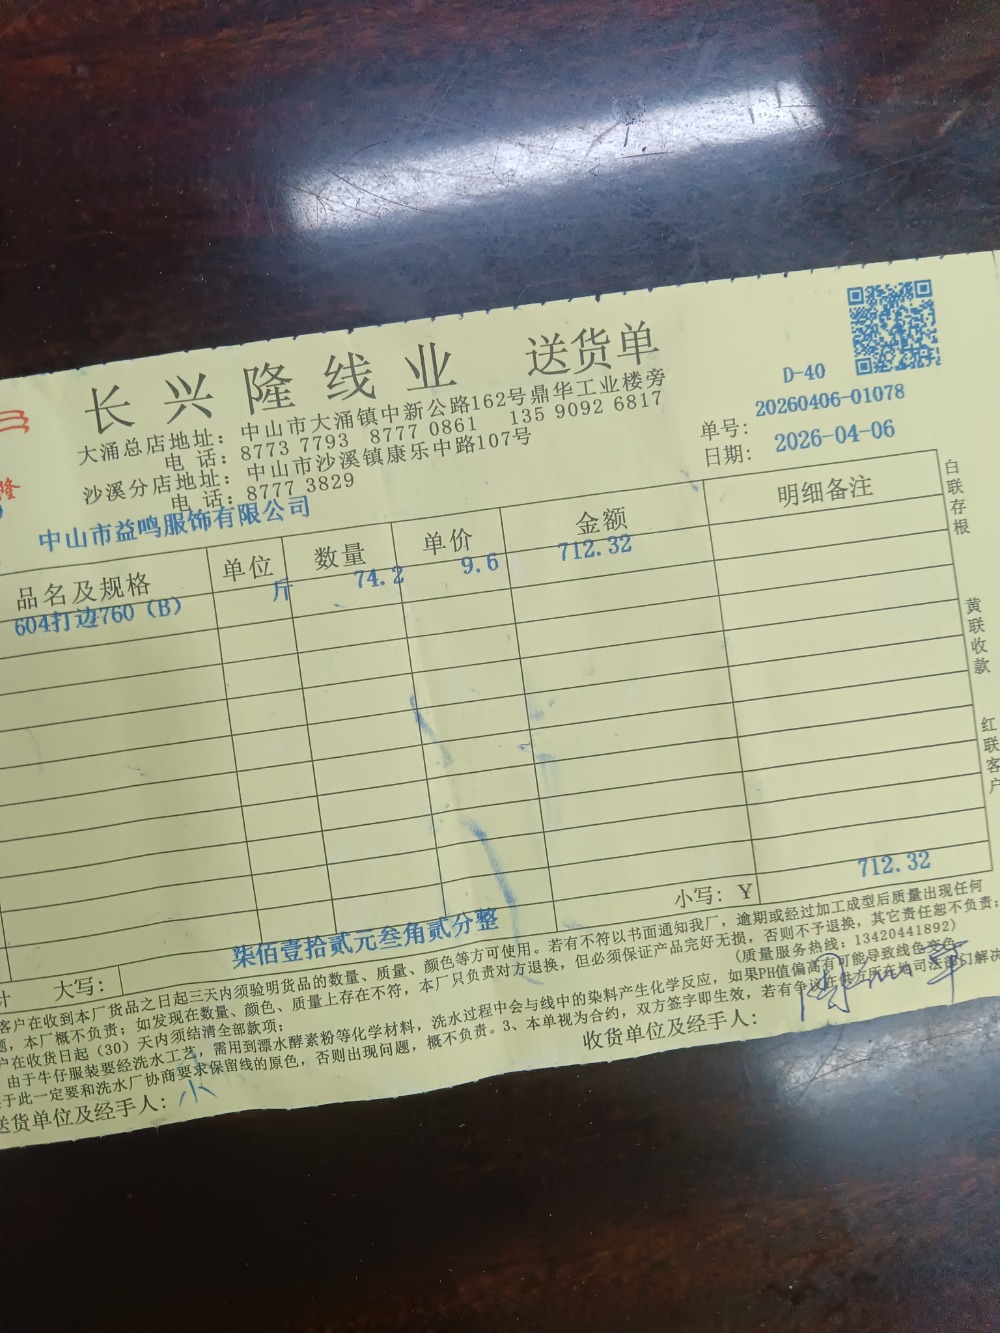 长兴隆线业 送货单
D-40
大涌总店地址：中山市大涌镇中新公路162号鼎华工业楼旁
电 话：8773 7793 8777 0861 135 9092 6817
沙溪分店地址：中山市沙溪镇康乐中路107号
电 话：8777 3829
单号：20260406-01078
日期：2026-04-06
隆
中山市益鸣服饰有限公司
品名及规格 单位 数量 单价 金额 明细备注
604打边760（B） 斤 74.2 9.6 712.32
白联存根
黄联收款
红联客户
小写：¥ 712.32
计 大写：柒佰壹拾贰元叁角贰分整
客户在收到本厂货品之日起三天内须验明货品的数量、质量、颜色等方可使用。若有不符以书面通知我厂，逾期或经过加工成型后质量出现任何
题，本厂概不负责；如发现在数量、颜色、质量上存在不符，本厂只负责对方退换，但必须保证产品完好无损，否则不予退换，其它责任恕不负责；
户在收货日起（30）天内须结清全部款项；
（质量服务热线：13420441892）
由于牛仔服装要经洗水工艺，需用到漂水酵素粉等化学材料，洗水过程中会与线中的染料产生化学反应，如果PH值偏高有可能导致线色变色
于此一定要和洗水厂协商要求保留线的原色，否则出现问题，概不负责。3、本单视为合约，双方签字即生效，若有争议在住方所在地司法部门解决
送货单位及经手人：小
收货单位及经手人：